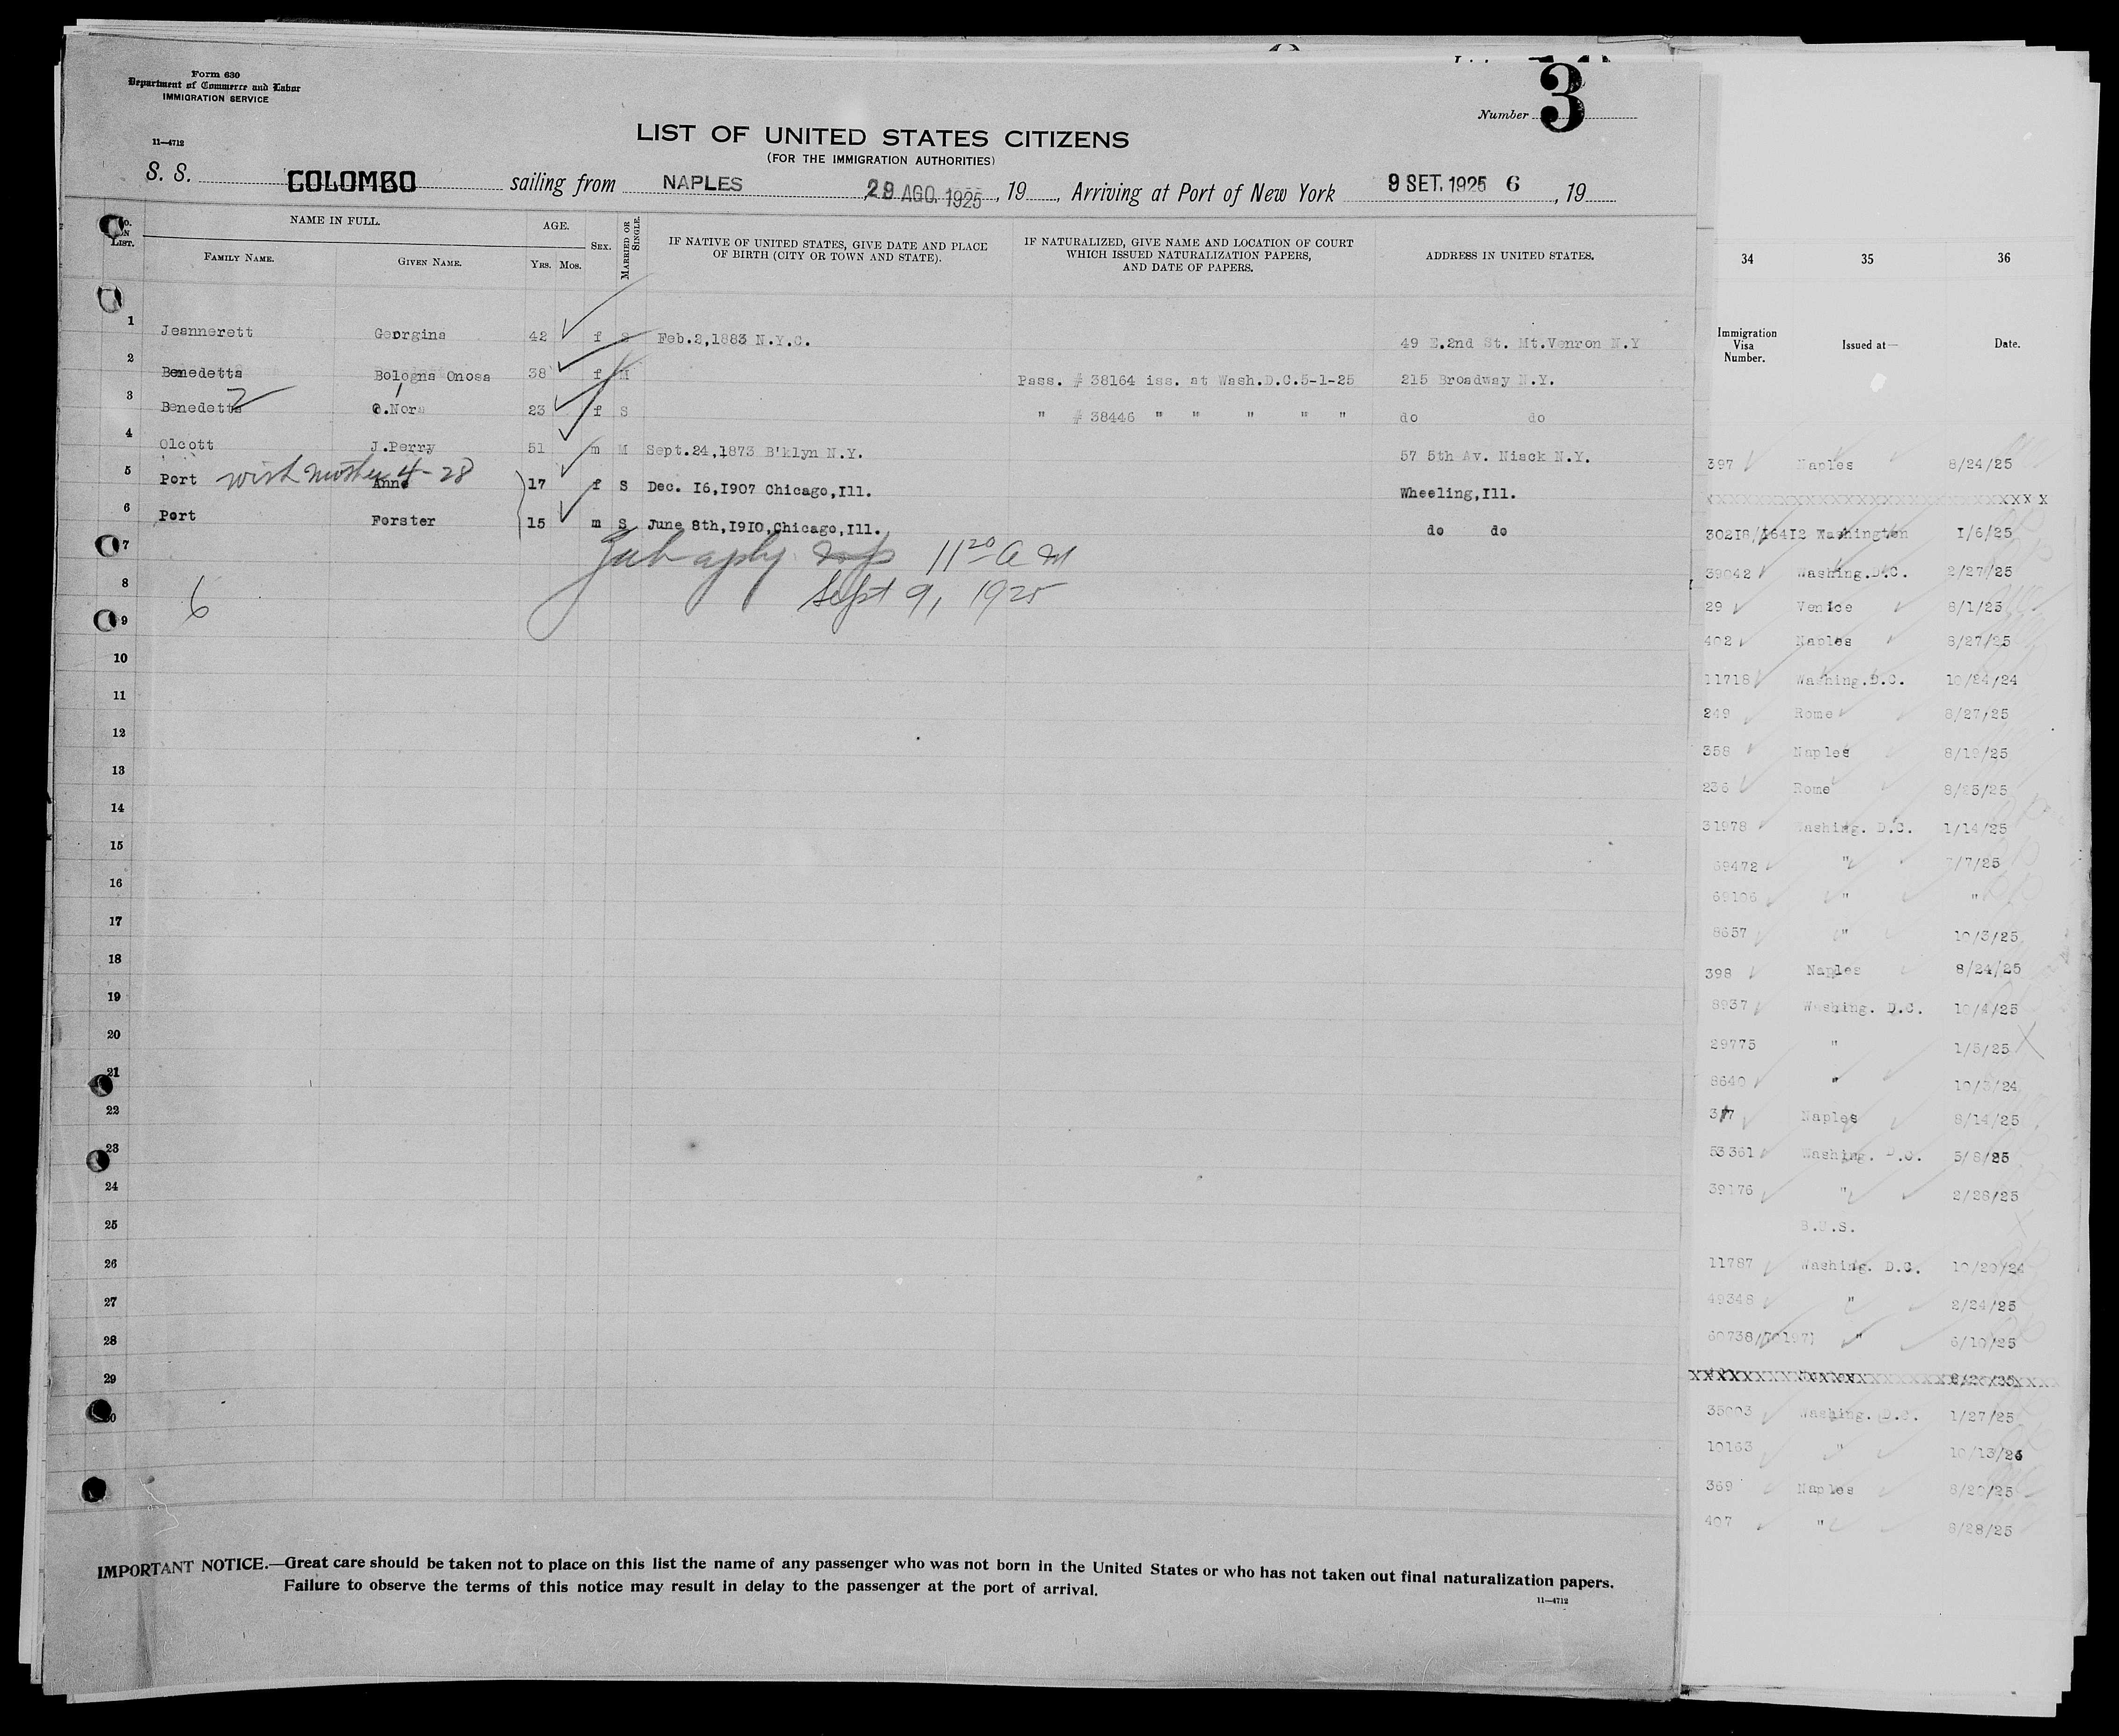 Form 630
Department of Commerce and Labor
IMMIGRATION SERVICE
11—4712
Number 3
LIST OF UNITED STATES CITIZENS
(FOR THE IMMIGRATION AUTHORITIES)
S. S. COLOMBO sailing from NAPLES 29 AGO. 1925, 19 , Arriving at Port of New York 9 SET. 1925 6 , 19
No. ON LIST. NAME IN FULL. AGE. SEX. MARRIED OR SINGLE. IF NATIVE OF UNITED STATES, GIVE DATE AND PLACE OF BIRTH (CITY OR TOWN AND STATE). IF NATURALIZED, GIVE NAME AND LOCATION OF COURT WHICH ISSUED NATURALIZATION PAPERS, AND DATE OF PAPERS. ADDRESS IN UNITED STATES.
FAMILY NAME. GIVEN NAME. YRS. MOS.
1 Jeannerett Georgina 42 f S Feb.2,1883 N.Y.C. 49 E.2nd St. Mt.Venron N.Y
2 Benedetta Bologna Onosa 38 f M Pass. # 38164 iss. at Wash.D.C.5-1-25 215 Broadway N.Y.
3 Benedetta 23 f S " # 38446 " " " " " do do
4 Olcott J.Perry 51 m M Sept.24,1873 B'klyn N.Y. 57 5th Av. Niack N.Y.
5 Port with mother 4-28 Anne 17 f S Dec. I6,I907 Chicago,Ill. Wheeling,Ill.
6 Port Forster 15 m S June 8th,I9I0,Chicago,Ill. do do
7 11 20 A M
8 6 Sept 9, 1925
9
10
11
12
13
14
15
16
17
18
19
20
21
22
23
24
25
26
27
28
29
30
IMPORTANT NOTICE.—Great care should be taken not to place on this list the name of any passenger who was not born in the United States or who has not taken out final naturalization papers.
Failure to observe the terms of this notice may result in delay to the passenger at the port of arrival.
11—4712
34 35 36
Immigration Visa Number. Issued at— Date.
397 Naples 8/24/25
302I8/I64I2 Washington I/6/25
39042 Washing.D.C. 2/27/25
29 Venice 8/1/25
402 Naples 8/27/25
11718 Washing.D.C. 10/24/24
249 Rome 8/27/25
358 Naples 8/19/25
236 Rome 8/25/25
31978 Washing. D.C. 1/14/25
69472 " 7/7/25
69106 " "
8657 " 10/3/25
398 Naples 8/24/25
8937 Washing. D.C. 10/4/25
29775 " 1/5/25
8640 " 10/3/24
Naples 8/14/25
53361 Washing. D.C. 5/8/25
39176 " 2/28/25
B.U.S.
11787 Washing. D.C. 10/20/24
49348 " 2/24/25
" 6/10/25
35003 Washing. D.C. 1/27/25
10163 "
369 Naples 8/20/25
407 " 8/28/25